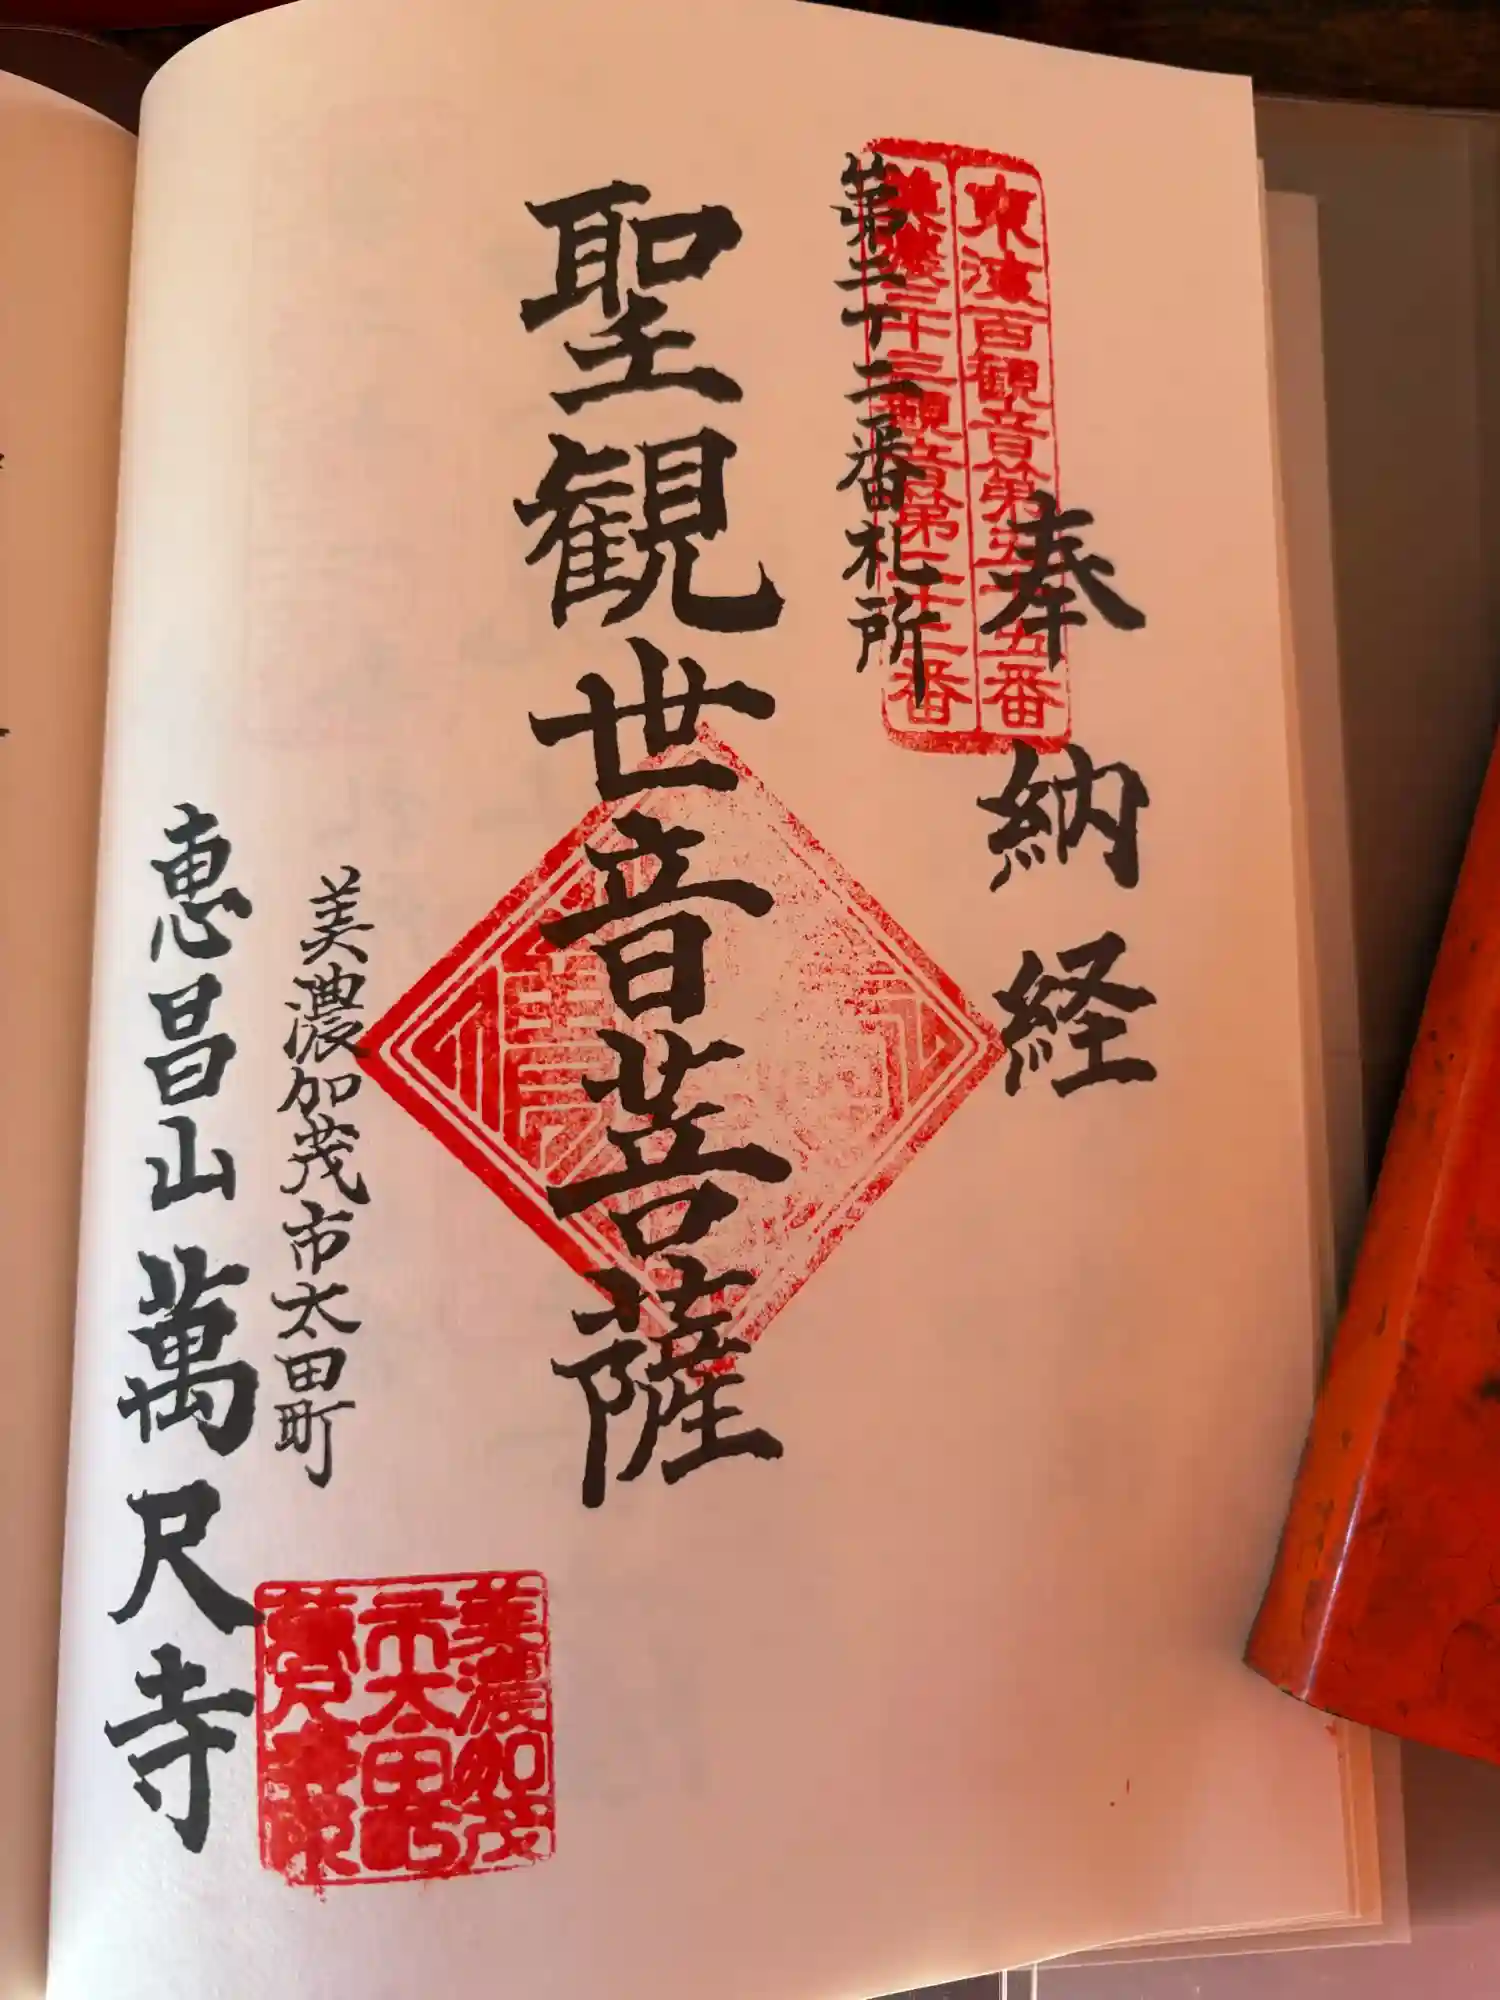 奉納経
東濃百観音第五十五番
美濃三十三観音第二十二番
第二十二番札所
聖観世音菩薩
美濃加茂市太田町
恵昌山萬尺寺
美濃加茂
市太田町
萬尺寺印